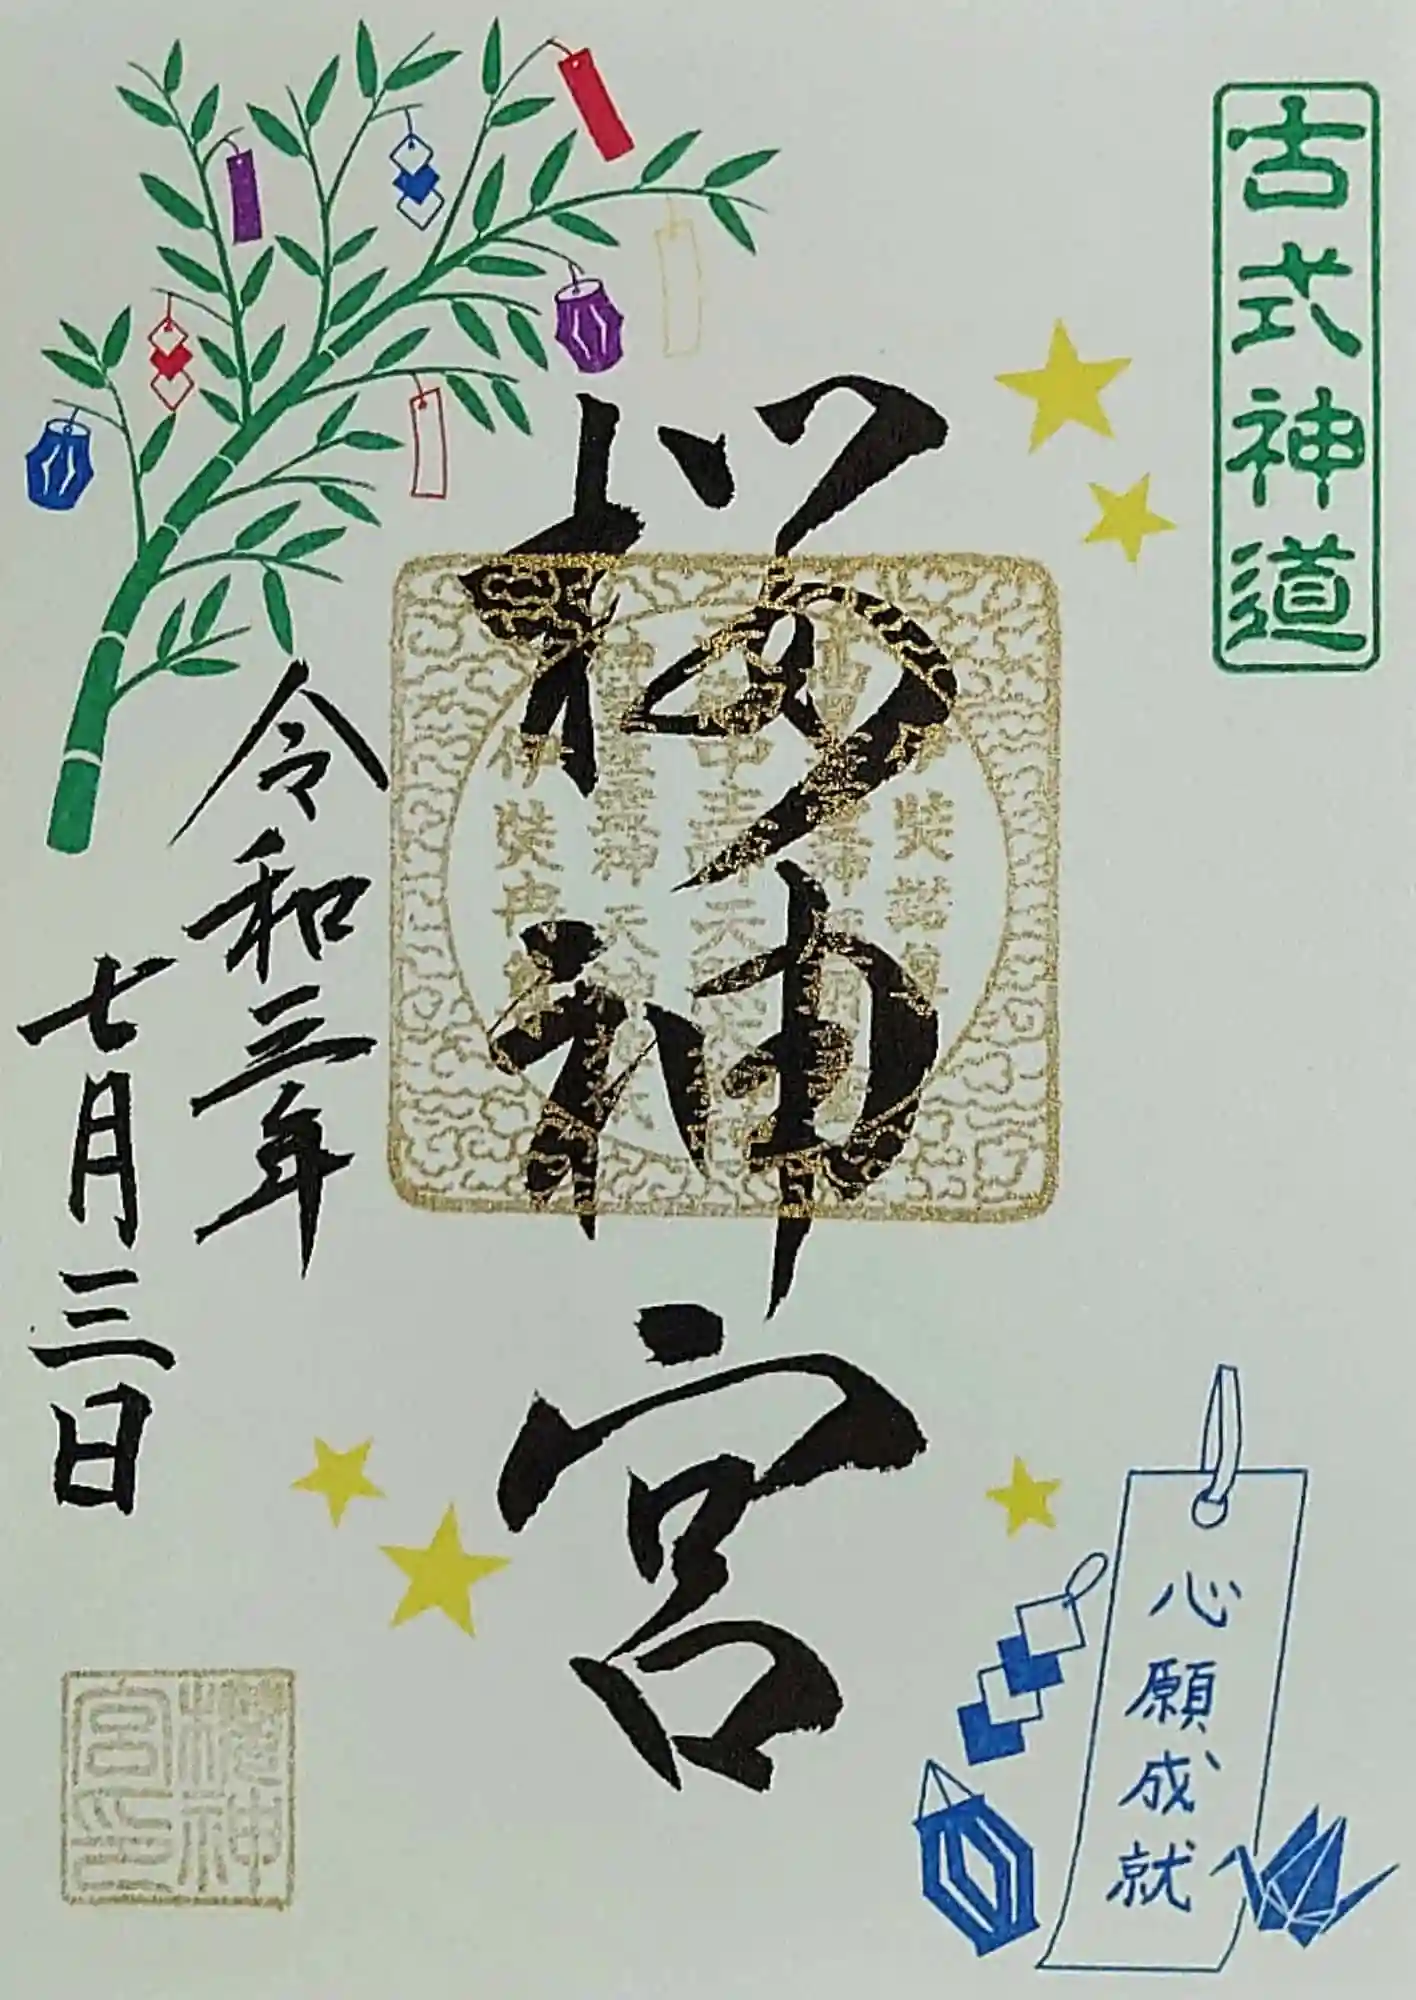 古式神道
桜神宮
令和三年
七月三日
心願成就
櫻神
宮印